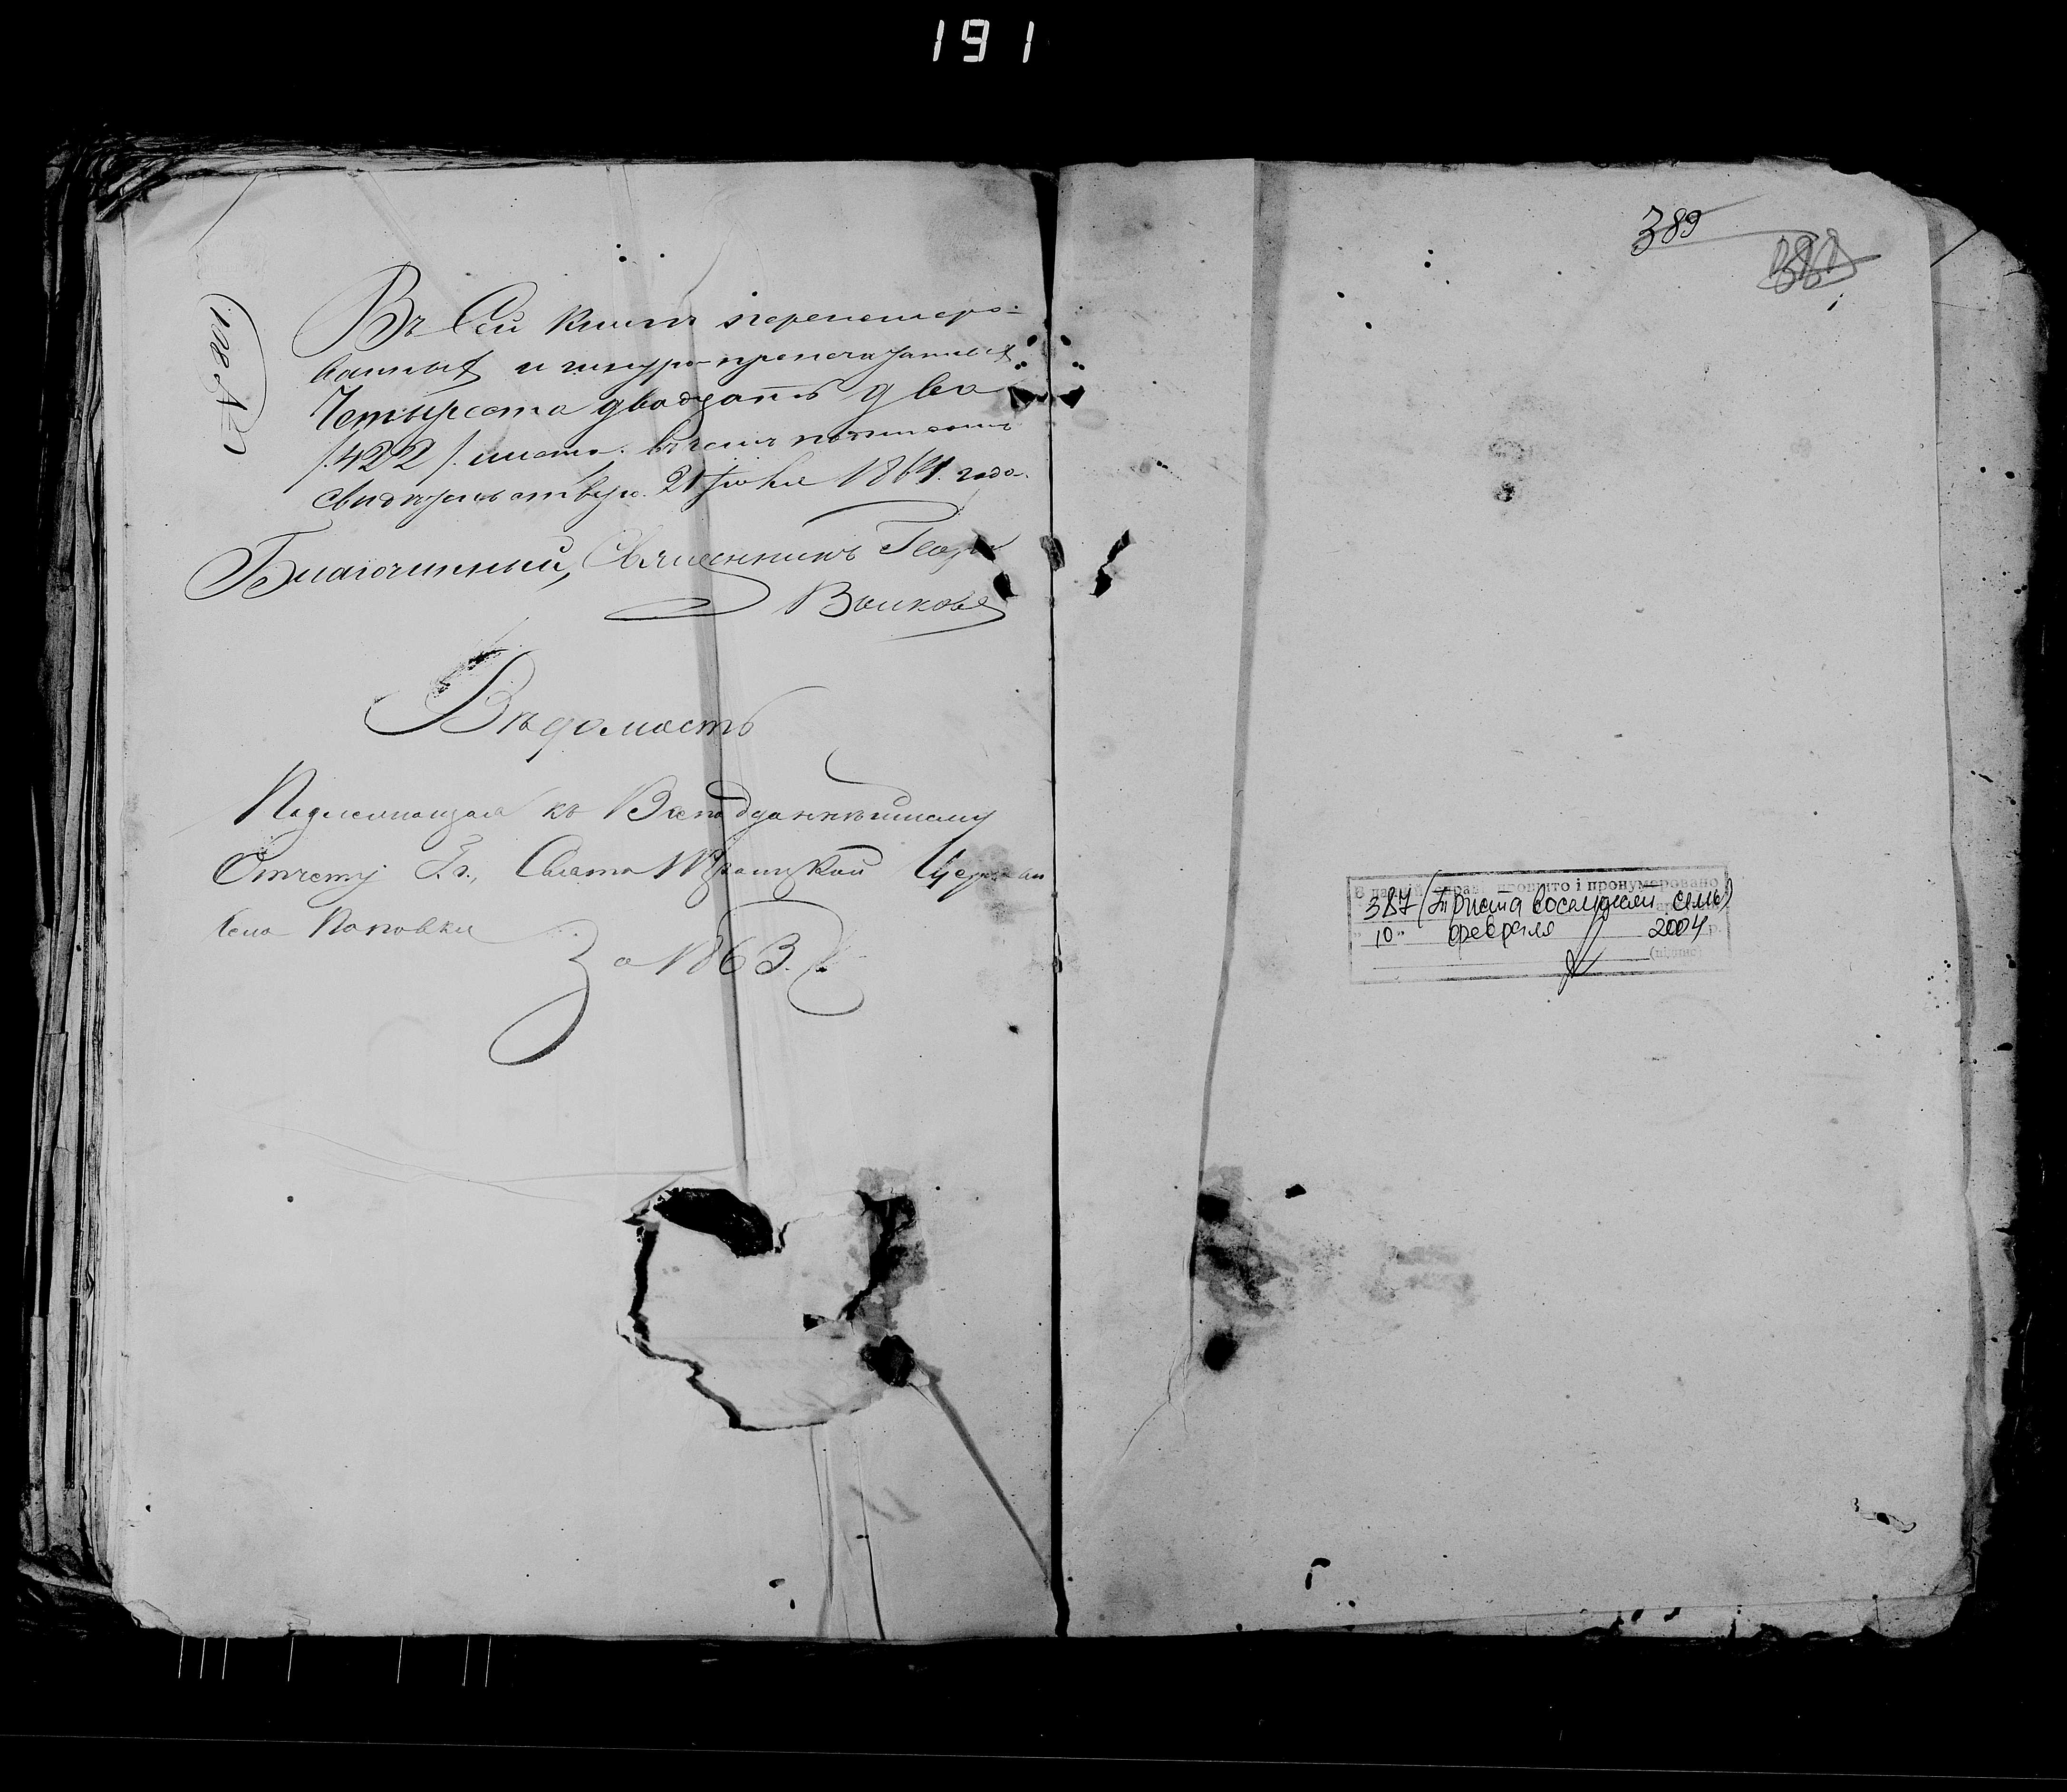 191
Въ Сей Книгѣ перенумеро-
ванныхъ и шнуро-припечатанныхъ
Четыреста двадцать два
/.422./ листа. въ чемъ подписомъ
свидѣтельствую. 21 Июня 1864. года.
Благочинный, Священникъ Георгій
Волковъ
Вѣдомость
Надлежащая къ Всеподданнѣйшему
Отчету Свято Троицкой Церкви
села Поповки
За 1863. г.
389
В цій справі прошито і пронумеровано
387 (Триста восемдесят семь)
"10" февраля 2004 р.
(підпис)